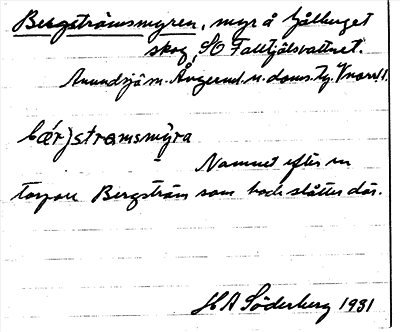 Bergströmsmyren, myr å Gålberget
skog, SO Falltjälsvattnet.
Anundsjö sn. Ångerml. n. doms. Tg. Vnorrl.
bær)strømsmy̆ra
Namnet efter en
torpare Bergström som hade slåtter där.
H A Söderberg 1931